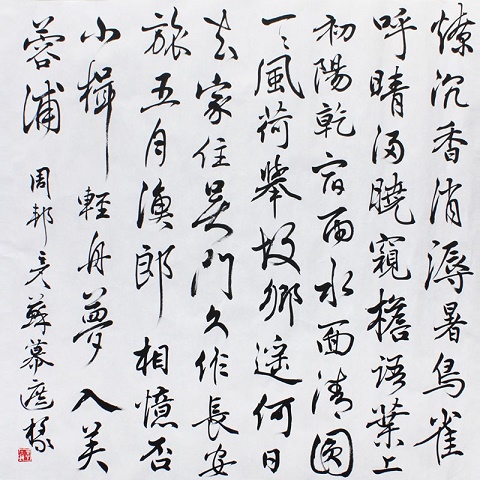 燎沉香消溽暑鳥雀
呼晴侵曉窺檐語葉上
初陽乾宿雨水面清圓
一一風荷舉故鄉遙何日
去家住吳門久作長安
旅五月漁郎相憶否
小楫輕舟夢入芙
蓉浦
周邦彥蘇幕遮